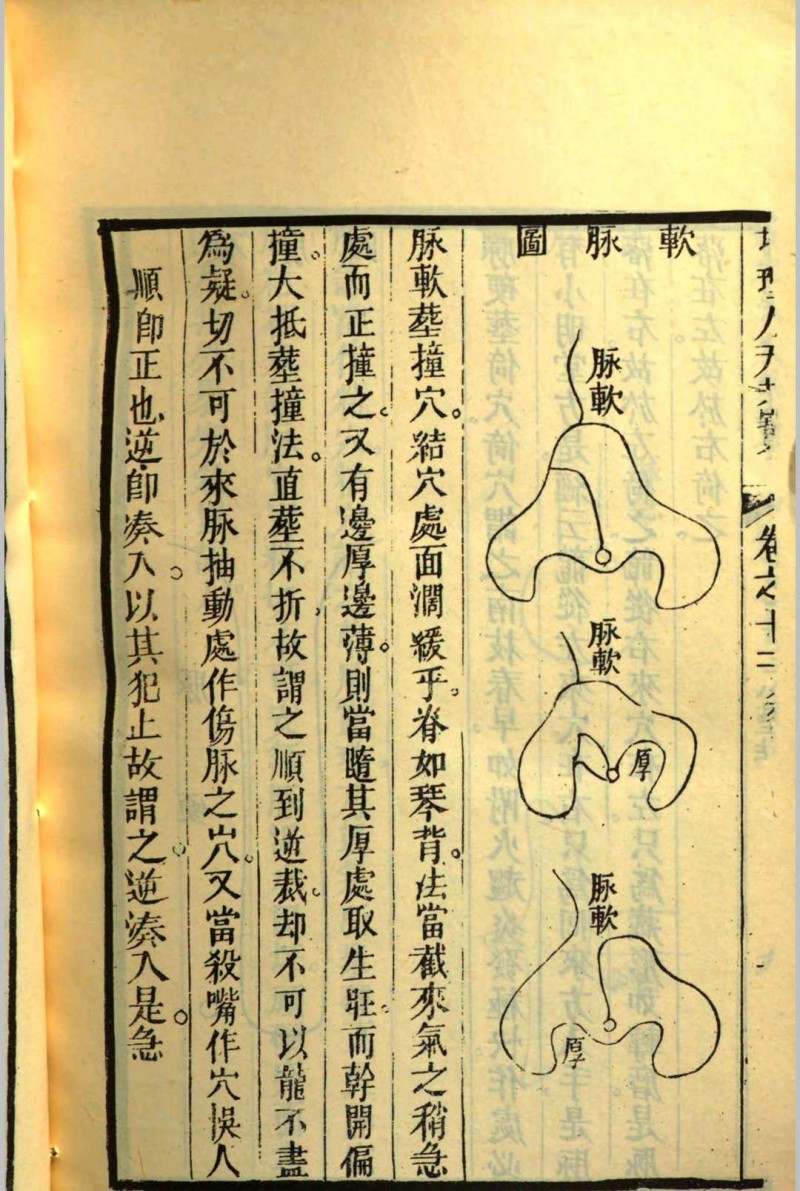 卷之十二
軟脉圖
脉軟
脉軟
厚
脉軟
厚
脉軟塟撞穴結穴處面濶緩乎脊如琴背法當截來氣之稍急
處而正撞之又有邊厚邊薄則當隨其厚處取生旺而斡開偏
撞大抵塟撞法直塟不折故謂之順到逆裁却不可以龍不盡
為疑切不可於來脉抽動處作傷脉之穴又當殺嘴作穴悞人
順即正也逆即凑入以其犯止故謂之逆凑入是急